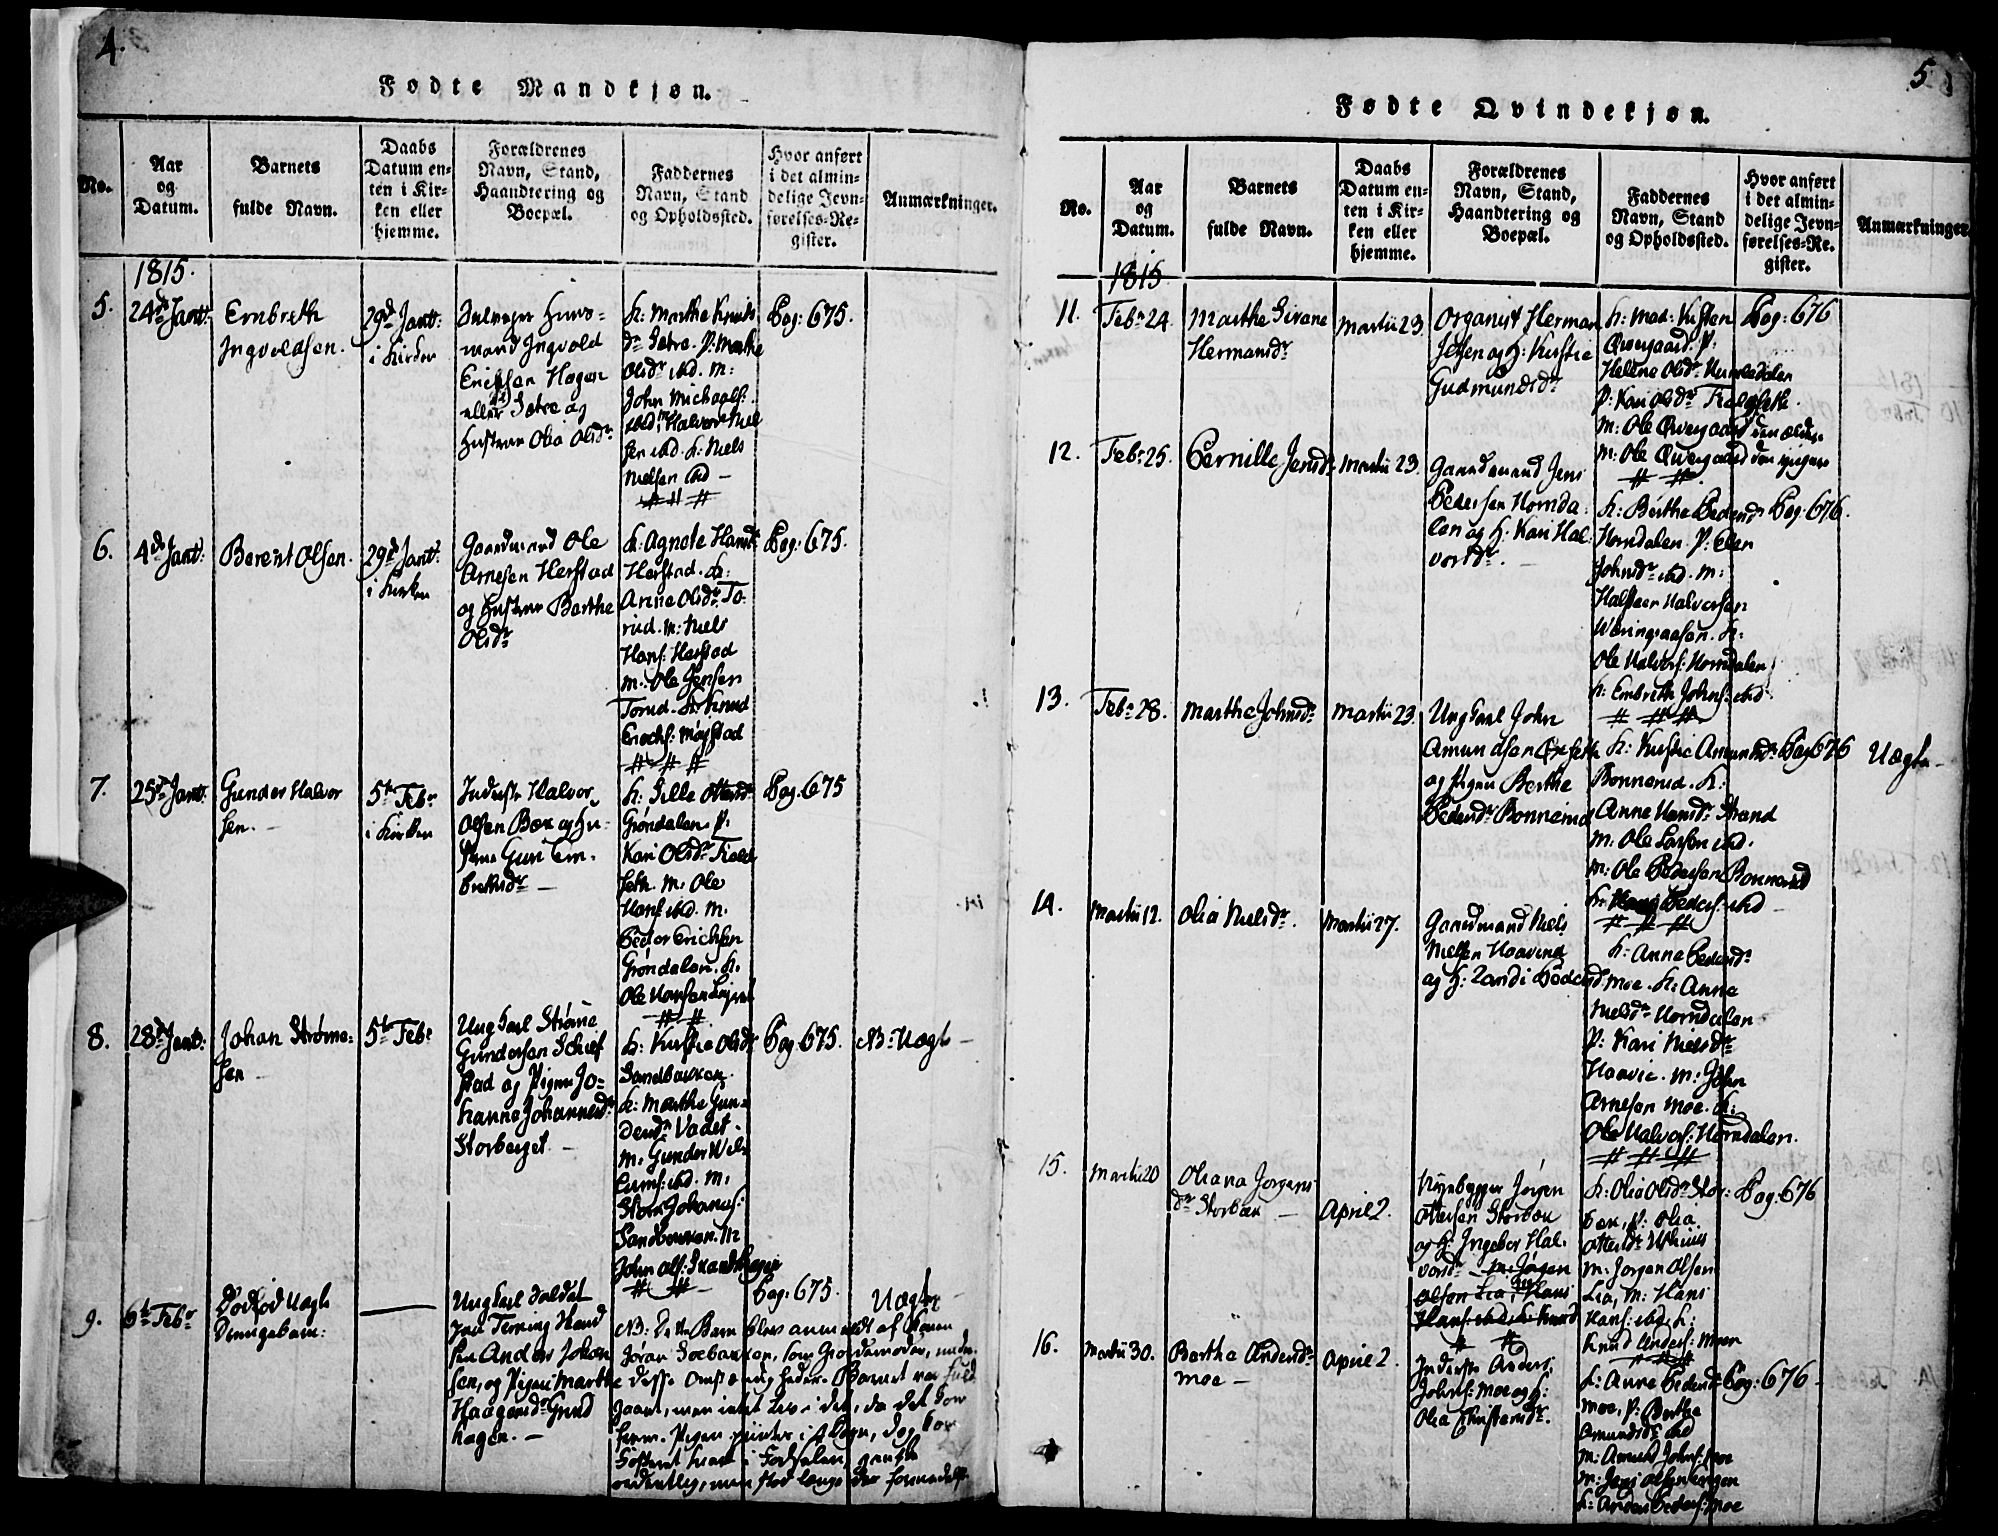 4.
Fødte Mandkjøn.
No.
Aar
og
Datum.
Barnets
fulde Navn.
Daabs
Datum en-
ten i Kir-
ken eller
hjemme.
Forældrenes
Navn, Stand,
Haandtering og
Boepæl.
Faddernes
Navn, Stand
og Opholdssted.
Hvor anført
i det almin-
delige Jevn-
førelses-Re-
gister.
Anmærkninger.
1815.
5.
24d Janr:
Embreth
Ingvoldsen.
29d Janr:
i Kirken
mand Ingvold
Erichsen Hagen
eller Sætre og
Hustrue Olia Olsdr
K: Marthe Knuds
dr Sætre. P: Marthe
Olsdr ibd. M:
John Michaels:
ibd: M: Halvor Niel
sen ibd. K: Niels
Nielsen ibd –
Pag: 675.
6.
4d Janr:
Berent Olsen.
29d Janr:
i Kirken
Gaardmand Ole
Arnesen Herstad
og Hustrue Barthe
Olsdr
K: Agnete Hansdr
Herstad. K:
Anne Olsdr To-
rud. M: Niels
Hans: Herstad
M: Ole Jensen
Torud. K: Knud
Erichs: Mojstad
Pag: 675.
7.
25d Janr:
Gunder Halvor
sen. –
5te Febr
i Kirken
Inderste Halvor
Olsen Bæk og Hu-
strue Guri Em-
brethsdr –
K: Sille Ottersdr
Grøndalen. P:
Kari Olsdr Trøed
seth. M: Ole
Hans: ibd. M:
Peder Erichsen
Grøndalen. K:
Ole Hansen
Pag: 675
8.
28d Janr:
Johan Strøme-
sen –
5te Febr
Ungkarl Strøme
Gundersen Schief
stad og Pigen Jo-
hanne Johannesdr
Storberget –
K: Kirstie Olsdr
Sandbakken.
K: Marthe Gun-
dersdr Vadet.
M: Gunder
ibd. M:
Johanes:
Sandbakken. M:
John Ols: Strandhagen
Pag: 675.
NB: Uægte –
9.
6te Febr
Dødfød Uægte
Drengebarn:
Ungkarl Soldat
sen Anders Johan
sen, og Pigen Marthe
Haagensdr Grind
hagen. –
NB: Dette Barn blev anmeldt af Konen
Jøran Soebakken, som Giordemoder, under
disse Omstændigheder: Barnet var fuld
baaret, men intet Liv i det, da det kom
Pag: 675.
Uægte
5
Fødte Qvindekjøn.
No.
Aar
og
Datum.
Barnets
fulde Navn.
Daabs
Datum en-
ten i Kir-
ken eller
hjemme.
Forældrenes
Navn, Stand,
Haandtering og
Boepæl.
Faddernes
Navn, Stand
og Opholdssted.
Hvor anført
i det almin-
delige Jevn-
førelses-Re-
gister.
Anmærkninger.
1815
11.
Febr 24.
Marthe Sirene
Hermansdr
Martii 23.
Organist Herman
Jensen og H: Kirstie
Gudmundsdr
K: Mad: Kirsten
Øvergaard. P:
Helene Olsdr
P: Kari Olsdr
M: Ole Øvergaard den ældre
M: Ole Øvergaard den yngre
Pag: 676
12.
Febr 25.
Pernille Jensdr
Martii 23.
Gaardmand Jens
Pedersen Hornda-
len og H: Kari Hal-
vorsdr. –
K: Berthe Pedersdr
Horndalen. P: Ellen
Johnsdr ibd. M:
Halsteen Halvorsen
Wæringsaasen. K:
Ole Halvors: Horndalen
K: Embreth Johns: ibd.
Pag: 676.
13.
Febr 28.
Marthe Johnsdr
Martii 23.
Ungkarl John
Amundsen
og Pigen Berthe
Pedersdr Bonnerud
K: Kirstie Amundsdr
Bonnerud. K:
Anne Hansdr Strand
M: Ole Larsen ibd.
M: Ole Pedersen Bonnerud
K: Hans Peders: ibd –
Pag 676
Uægte –
14.
Martii 12.
Olia Nielsdr.
Martii 27.
Gaardmand Niels
Nielsen Haavind
og H: Randi Pedersdr
K: Anne Pedersdr
Moe. K: Anne
Nielsdr Horndalen
P: Kari Nielsdr
Haavie. M: John
Arnesen Moe. K:
Ole Halvors: Horndalen.
15.
Martii 20
Oleana Jorgens
dr Storbæk –
April 2.
Nyebygger Jørgen
Ottersen Storbæk
og H: Ingebor Hal-
vorsdr – M: Jørgen
Olsen Lia, M: Hans
Hans: ibd. K: Knud
K: Olia Olsdr Stor-
bæk, P: Olia
Ottersdr
M: Jorgen Olsen
Lia, M: Hans
Hans: ibd. K:
Knud Anders: Moen
Pag: 676
16.
Martii 30.
Barthe Andersdr
Moe –
April 2.
Inderste Anders
Johns: Moe og H:
Olia Christensdr.
K: Anne Pedersdr
Moe, P: Berthe
Amundsdr ibd
M: Amund Johns: Moe
M: Jens Olsen Engen
K: Anders Peders: Moe
Pag: 676 –